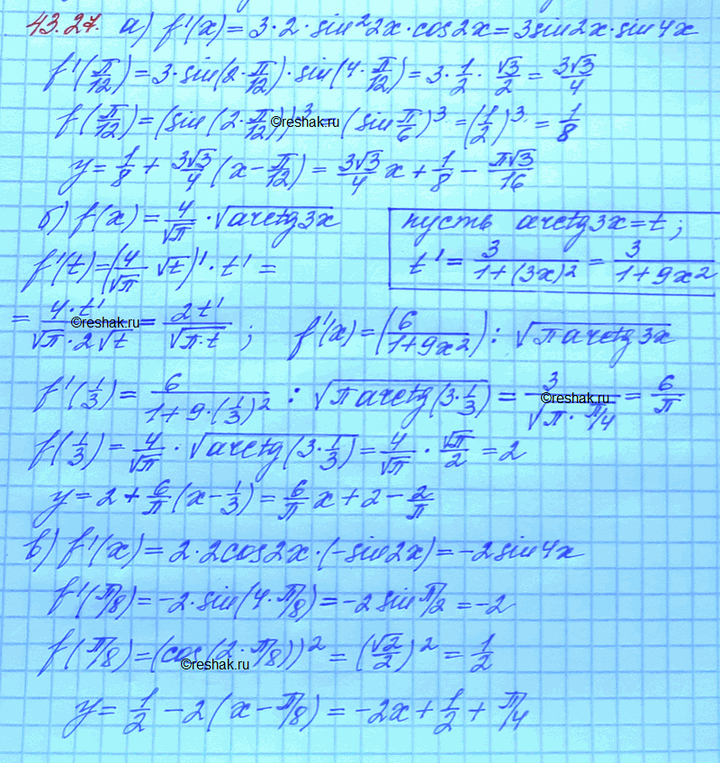 43.27. а) f'(x) = 3·2·sin²2x·cos2x = 3sin2x·sin4x
f'(π/12) = 3·sin(2·π/12)·sin(4·π/12) = 3·1/2·√3/2 = 3√3/4
f(π/12) = (sin(2·π/12))³ = (sin π/6)³ = (1/2)³ = 1/8
©reshak.ru
y = 1/8 + 3√3/4 (x - π/12) = 3√3/4 x + 1/8 - π√3/16
б) f(x) = 4/√π · √arctg3x
пусть arctg3x = t;
t' = 3/(1+(3x)²) = 3/(1+9x²)
f'(t) = (4/√π √t)'·t' =
= 4·t'/(√π·2√t) = 2t'/√(π·t); f'(x) = (6/(1+9x²)) : √(π arctg3x)
©reshak.ru
f'(1/3) = 6/(1+9·(1/3)²) : √(π arctg(3·1/3)) = 3/√(π·π/4) = 6/π
©reshak.ru
f(1/3) = 4/√π · √arctg(3·1/3) = 4/√π · √π/2 = 2
y = 2 + 6/π (x - 1/3) = 6/π x + 2 - 2/π
в) f'(x) = 2·2cos2x·(-sin2x) = -2sin4x
f'(π/8) = -2·sin(4·π/8) = -2 sin π/2 = -2
f(π/8) = (cos(2·π/8))² = (√2/2)² = 1/2
©reshak.ru
y = 1/2 - 2(x - π/8) = -2x + 1/2 + π/4